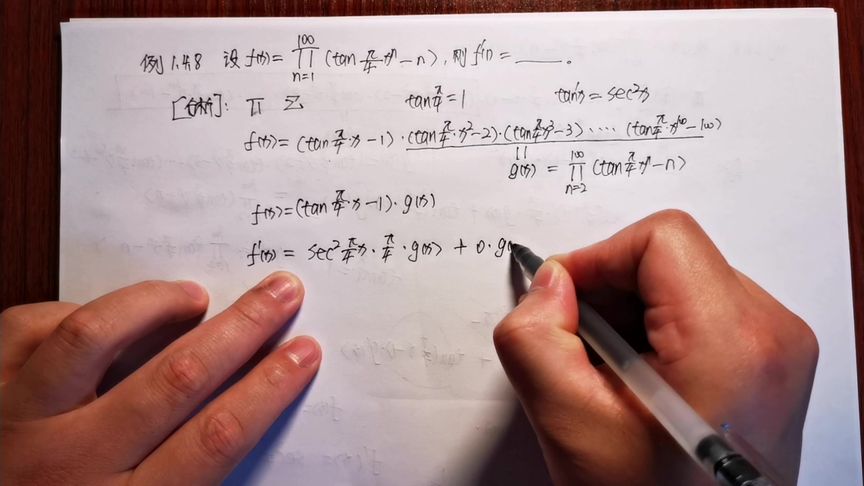 例1.4.8 设 f(x) = ∏_{n=1}^{100} (tan π/4 xⁿ − n), 则 f'(1) = ____.
[分析]: ∏ Σ tan π/4 = 1 tan'x = sec²x
f(x) = (tan π/4 · x − 1) · (tan π/4 · x² − 2) · (tan π/4 x³ − 3) ····· (tan π/4 · x¹⁰⁰ − 100)
g(x) = ∏_{n=2}^{100} (tan π/4 xⁿ − n)
f(x) = (tan π/4 · x − 1) · g(x)
f'(x) = sec² π/4 x · π/4 · g(x) + 0 · g(